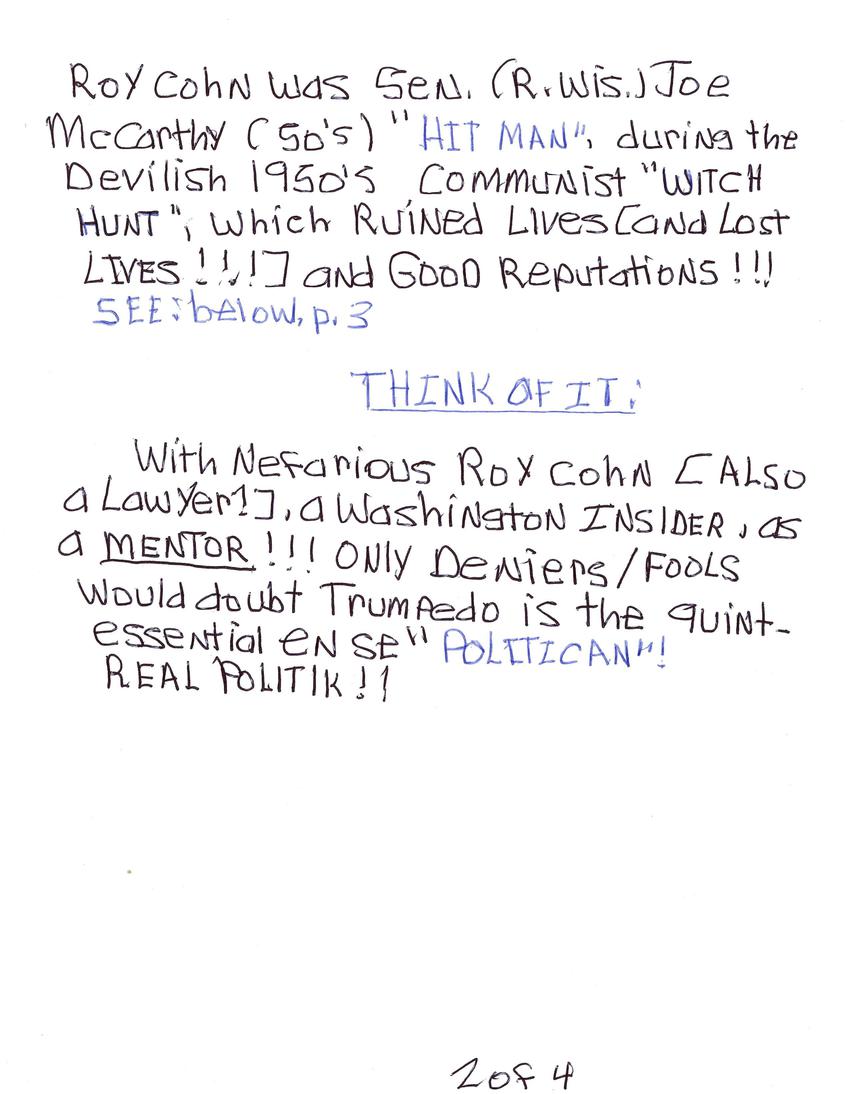 Roy Cohn was Sen. (R. Wis.) Joe
McCarthy (50's) "HIT MAN", during the
Devilish 1950's Communist "WITCH
HUNT", which RUINED Lives [and Lost
LIVES !!!] and GOOD Reputations !!!
SEE: below, p. 3
THINK OF IT:
With Nefarious Roy Cohn [ALSO
a Lawyer!], a Washington INSIDER, as
a MENTOR !!! ONLY Deniers/FOOLS
Would doubt Trumpedo is the quint-
essential en se "POLITICAN"!
REAL POLITIK !!
2 of 4